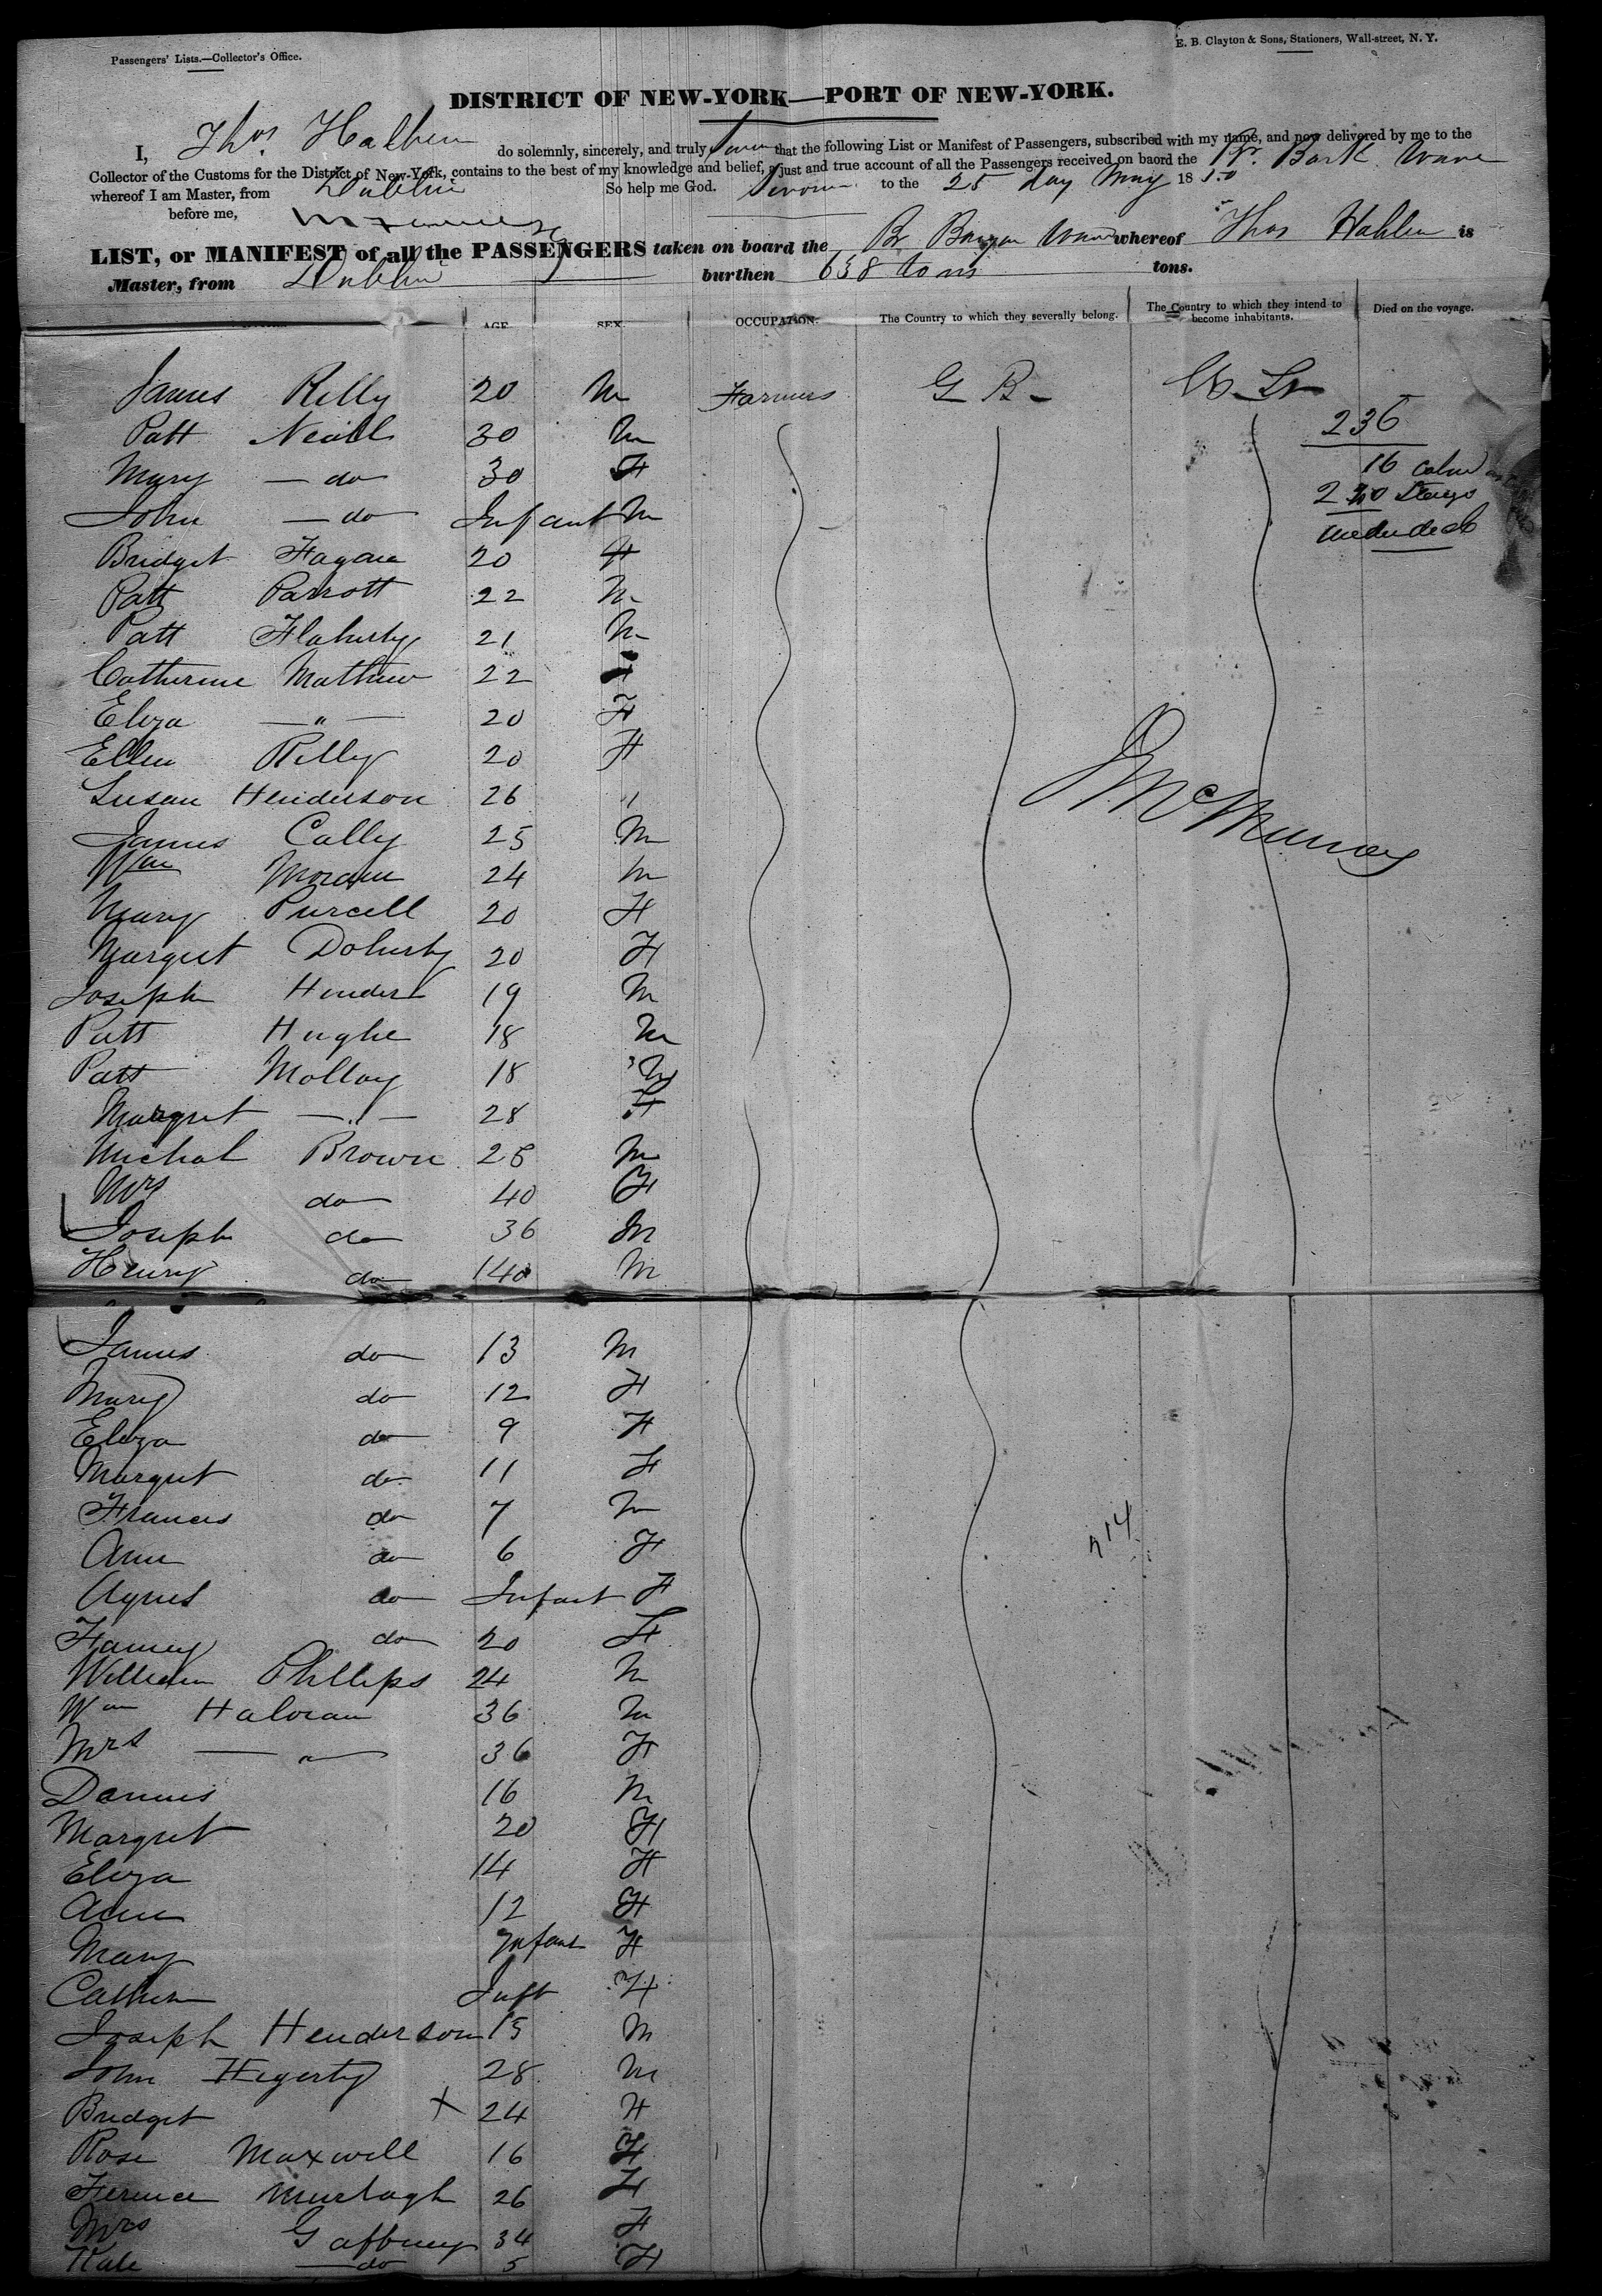 Passengers' Lists.—Collector's Office.
E. B. Clayton & Sons, Stationers, Wall-street, N. Y.
DISTRICT OF NEW-YORK—PORT OF NEW-YORK.
I, Thos. Halpin do solemnly, sincerely, and truly swear that the following List or Manifest of Passengers, subscribed with my name, and now delivered by me to the
Collector of the Customs for the District of New-York, contains to the best of my knowledge and belief, a just and true account of all the Passengers received on baord the Br. Bark
whereof I am Master, from Dublin So help me God. Sworn to the 25 day May 1850
before me,
LIST, or MANIFEST of all the PASSENGERS taken on board the Br whereof Thos is
Master, from Dublin burthen 638 tons tons.
AGE. SEX. OCCUPATION. The Country to which they severally belong. The Country to which they intend to become inhabitants. Died on the voyage.
James Rilly 20 M Farmers G B
Patt Neill 30 M 236
Mary do 30 F 16
John do Infant M
Bridget Fagan 20 F
Patt Parrott 22 M
Patt Flaherty 21 M
Catherine Mathew 22 F
Eliza " 20 F
Ellen Rilly 20 F
Susan Henderson 26 "
James Cally 25 M
Wm Moran 24 M
Mary Purcell 20 F
Margret Doherty 20 F
Joseph 19 M
Patt Hughe 18 M
Patt Molloy 18 M
Margret " 28 F
Michal Brown 28 M
Mrs do 40 F
Joseph do 36 M
Henry do M
James do 13 M
Mary do 12 F
Eliza do 9 F
Margret do 11 F
Frances do 7 M
Ann do 6 F
Agnes do Infant F
do 20 F
William Phillips 24 M
Wm Haloran 36 M
Mrs " 36 F
Dennis 16 M
Margret 20 F
Eliza 14 F
Ann 12 F
Mary Infant F
Cathern Inft F
Joseph Henderson 15 M
John Hegerty 28 M
Bridget X 24 F
Rose Maxwell 16 F
Murtagh 26 F
Mrs Gaffney 34 F
Kate do 5 F